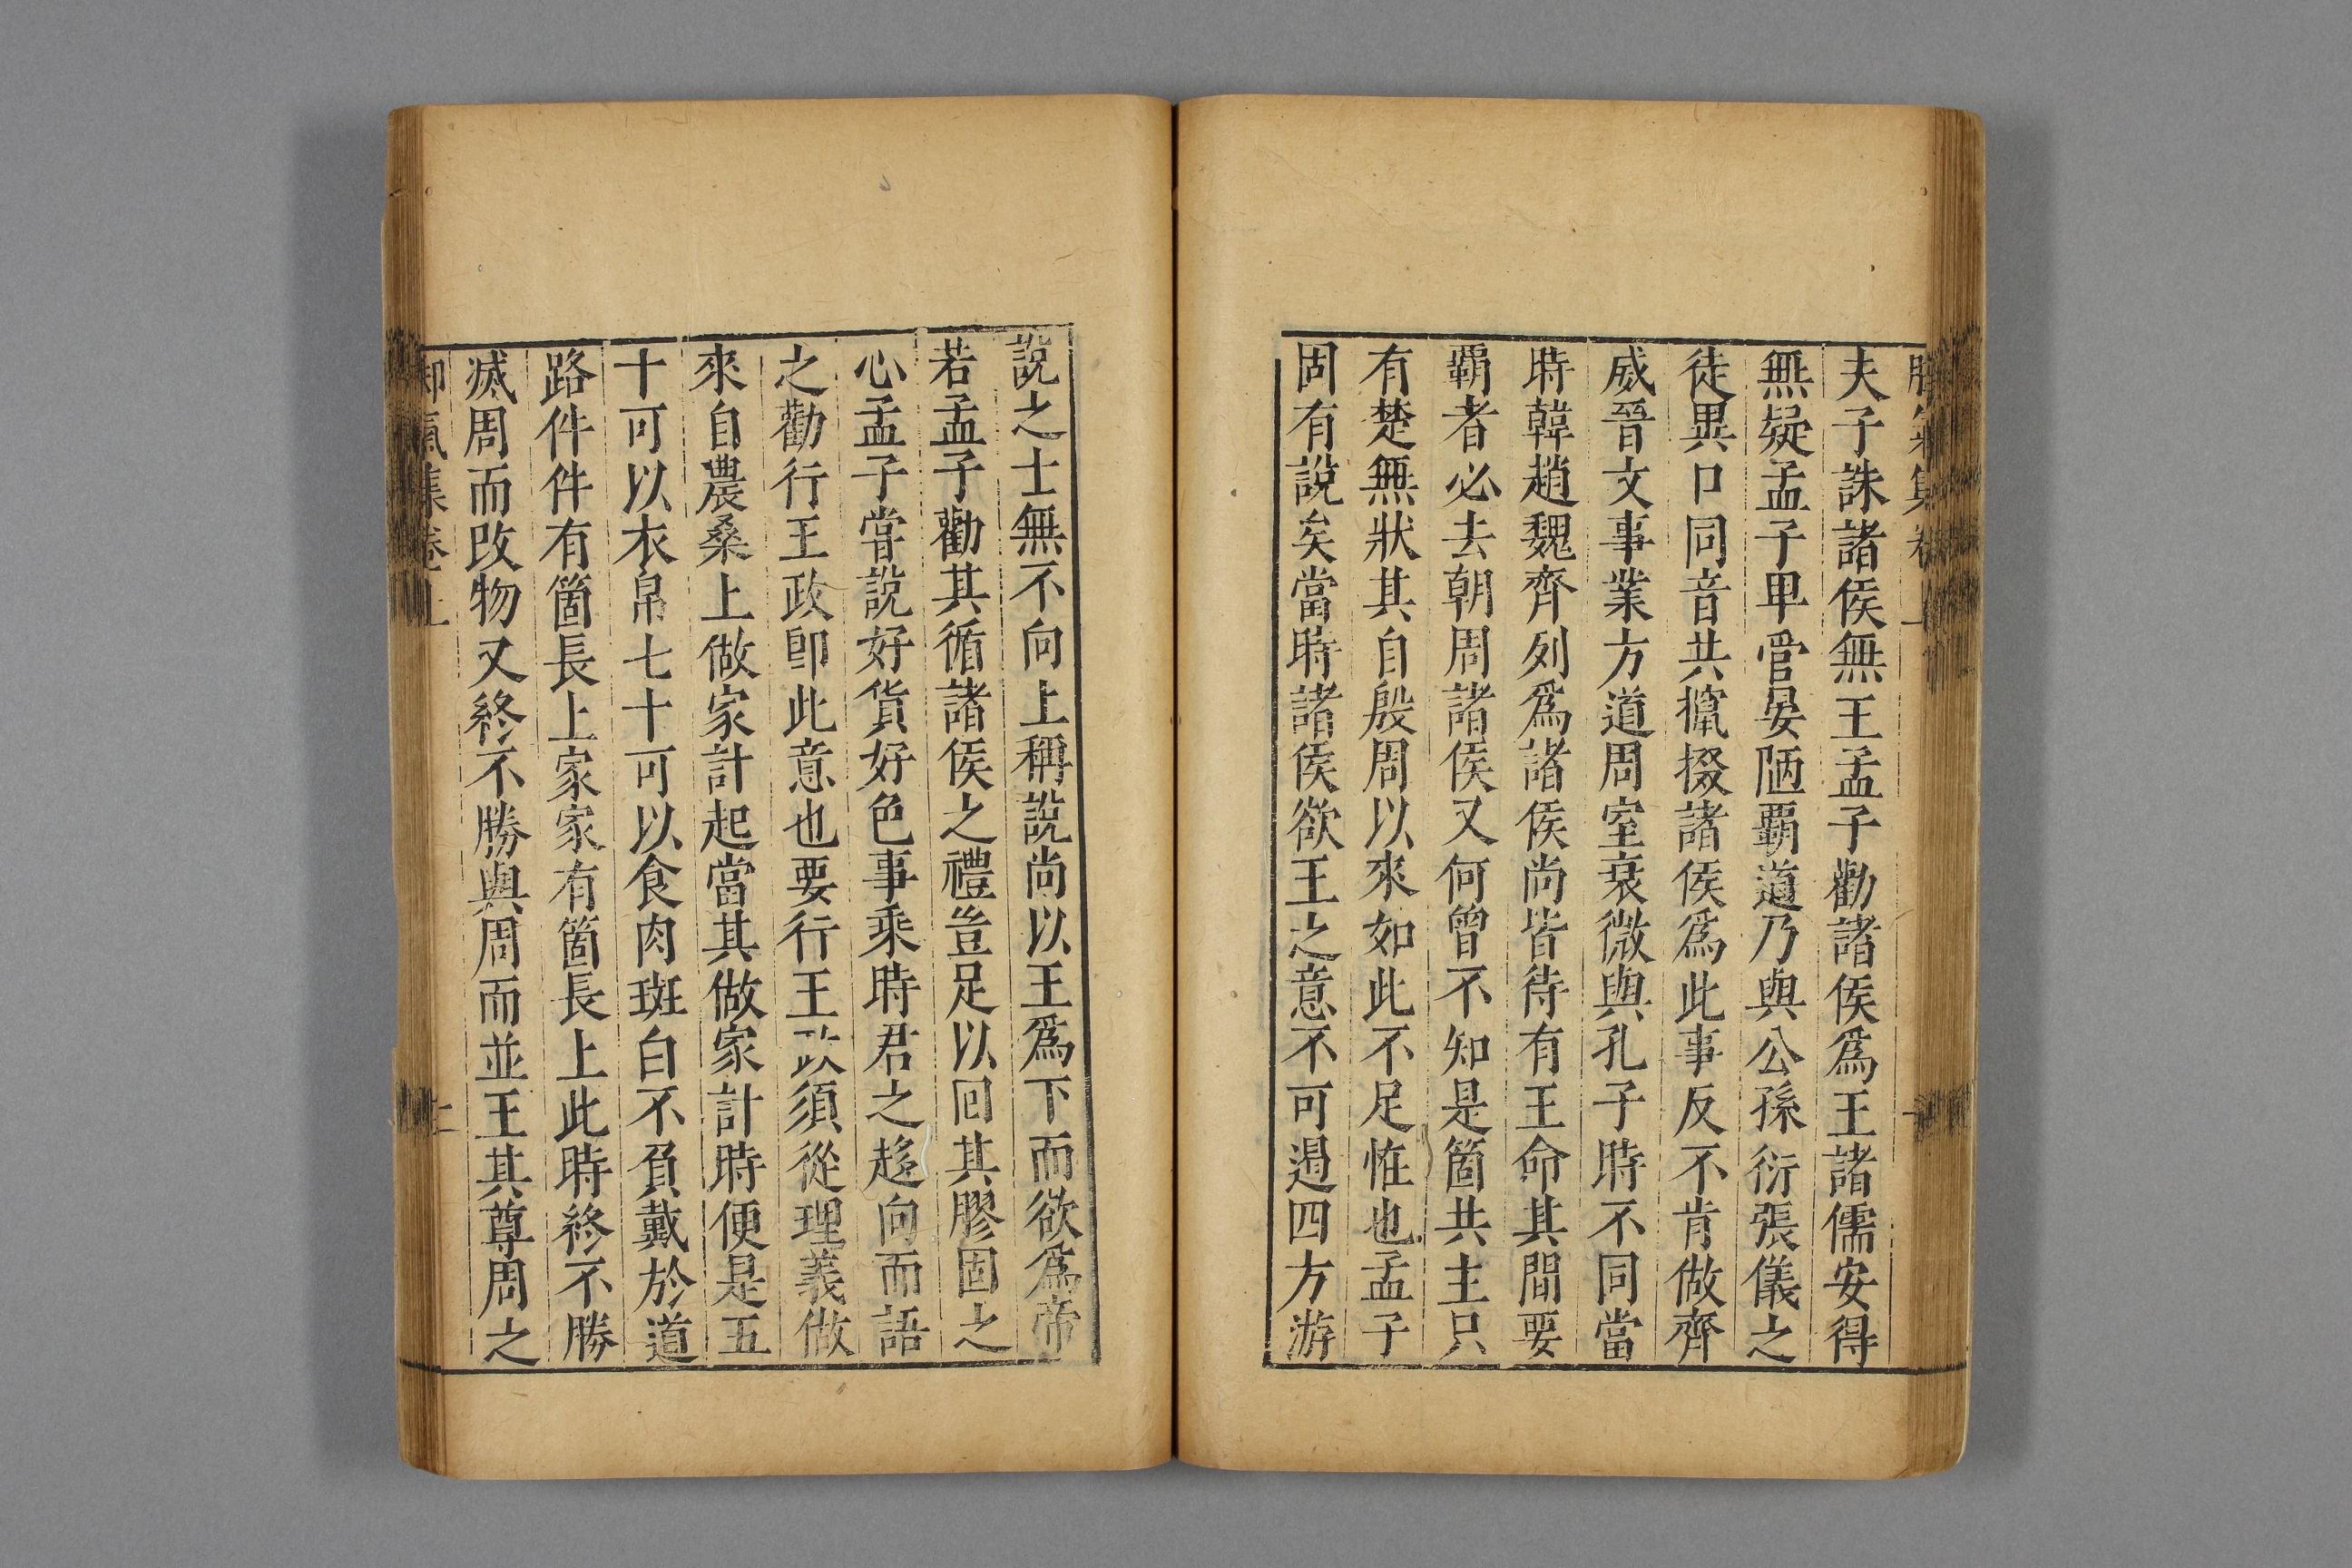 夫子誅諸侯無王孟子勸諸侯爲王諸儒安得
無疑孟子卑管晏陋覇道乃與公孫衍張儀之
徒異口同音共攛掇諸侯爲此事反不肯做齊
威晉文事業方道周室衰微與孔子時不同當
時韓趙魏齊列爲諸侯尚皆待有王命其間要
覇者必去朝周諸侯又何曾不知是箇共主只
有楚無狀其自殷周以來如此不足恠也孟子
固有說矣當時諸侯欲王之意不可遏四方游
說之士無不向上稱說尚以王爲下而欲爲帝
若孟子勸其循諸侯之禮豈足以回其膠固之
心孟子嘗說好貨好色事乘時君之趍向而語
之勸行王政卽此意也要行王政須從理義做
來自農桑上做家計起當其做家計時便是五
十可以衣帛七十可以食肉斑白不負戴於道
路件件有箇長上家家有箇長上此時終不勝
滅周而改物又終不勝與周而並王其尊周之
集卷上